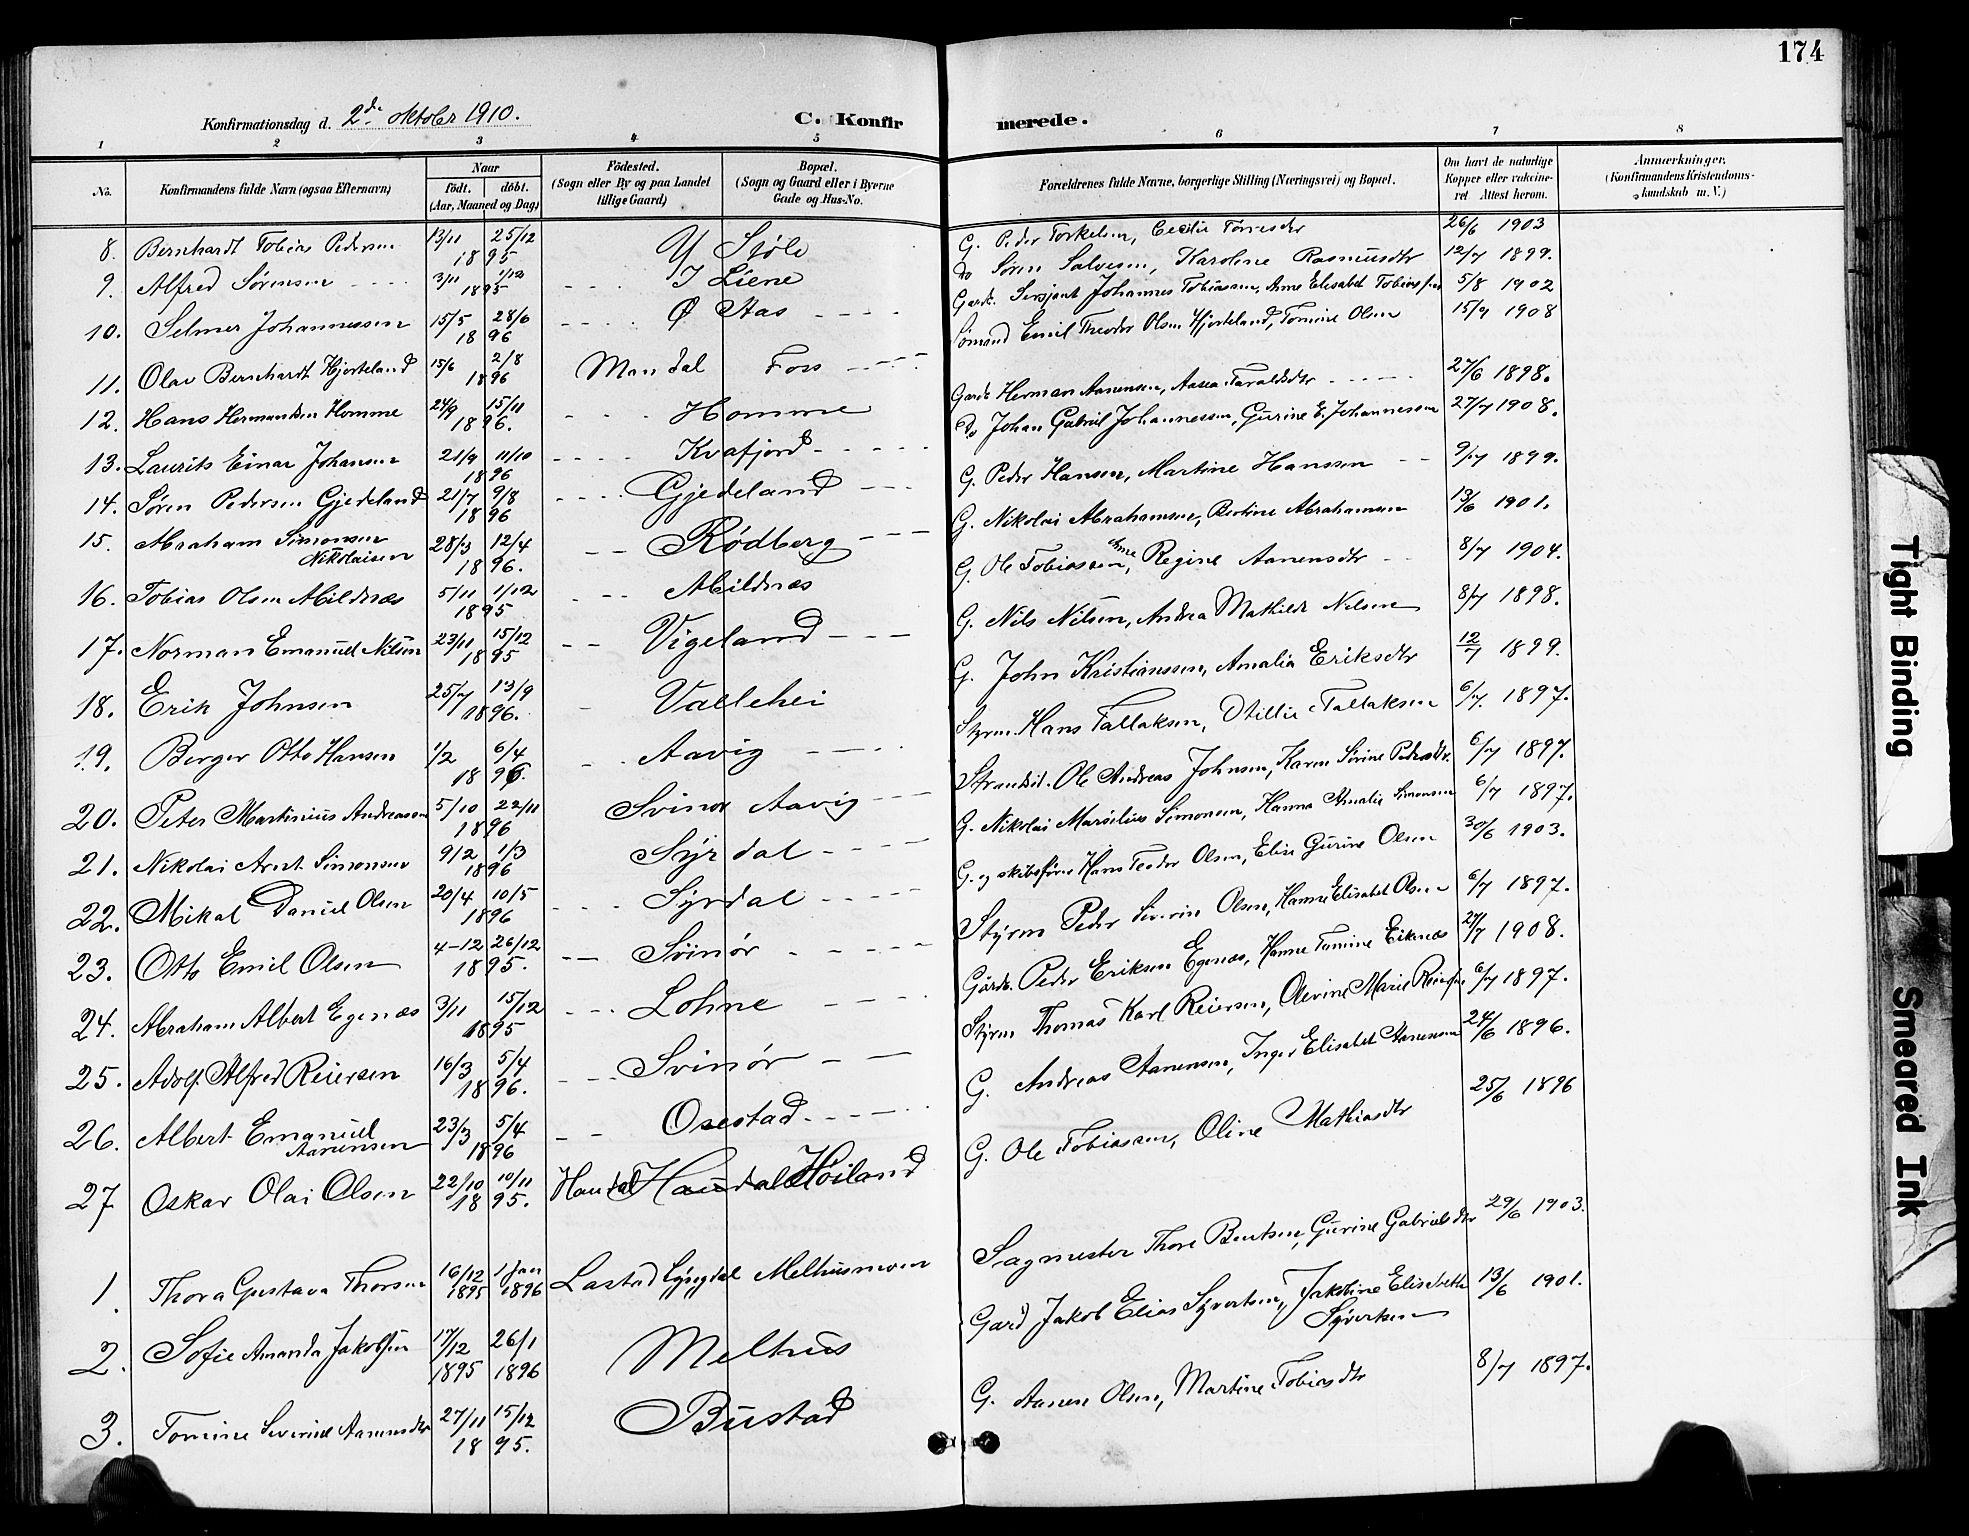 174
Konfirmationsdag d. 2de oktober 1910.
C. Konfirmerede.
1 2 3 4 5 6 7 8
No.
Konfirmandens fulde Navn (ogsaa Efternavn)
Naar
født. døbt.
(Aar, Maaned og Dag)
Födested.
(Sogn eller By og paa Landet
tillige Gaard)
Bopæl.
(Sogn og Gaard eller i Byerne
Gade og Hus-No.
Forældrenes fulde Navne, borgerlige Stilling (Næringsvei) og Bopæl.
Om havt de naturlige
Kopper eller vakcine-
ret Attest herom.
Anmærkninger.
(Konfirmandens Kristendoms-
kundskab m. V.)
8. Bernhardt Tobias Pedersen 13/11 25/12 1895 Y Stöle G. Peder Torkelsen, Cecilie Torresdtr 26/6 1903
9. Alfred Sørensen 3/11 1/12 1895 I Liene do Sören Salvesen, Karoline Rasmusdtr 12/7 1899.
10. Selmer Johannessen 15/5 28/6 1896 Ø Aas Gardr. Sersjant Johannes Tobiassen, Anne Elisabet Tobiassen 5/8 1902
11. Olav Bernhardt Hjorteland 15/6 2/8 1896 Mandal Foss Sømand Emil Theodor Olsen Hjorteland, Tomine Olsen 15/7 1908
12. Hans Hermandsen Homme 24/9 15/11 1896. Homme Gardr Herman Aanensen, Aasea Taraldsdtr 27/6 1898.
13. Laurits Einar Johansen 21/9 11/10 1896 Kvafjord do Johan Gabriel Johannessen, Gurine E. Johannessen 27/7 1908.
14. Sören Pedersen Gjedeland 21/7 9/8 1896 Gjedeland G. Peder Hansen, Martine Hanssen 9/7 1899.
15. Abraham Simonsen Nikolaisen 28/3 12/4 1896. Rödberg G. Nikolai Abrahamsen, Bertine Abrahamsen 13/6 1901.
16. Tobias Olsen Abildnæs 5/11 1/12 1895 Abildnæs G. Ole Tobiassen, Anne Regine Aanensdtr 8/7 1904.
17. Norman Emanuel Nilsen 23/11 15/12 1895 Vigeland G. Nils Nilsen, Andrea Mathilde Nilsen 8/7 1898.
18. Erik Johnsen 25/7 13/9 1896. Vallehei G. John Kristianssen, Amalia Eriksdtr 12/7 1899.
19. Berger Otto Hansen 1/2 6/4 1896. Aavig Styrm Hans Tallaksen, Otillie Tallaksen 6/7 1897.
20. Peter Martinius Andreassen 5/10 22/11 1896 Svinør Aavig Strandsid. Ole Andreas Johnsen, Karen Sörine Pedersdtr. 6/7 1897.
21. Nikolai Arnt Simonsen 9/2 1/3 1896 Syrdal G. Nikolai Marselius Simonsen, Hanna Amalie Simonsen 6/7 1897.
22. Mikal Daniel Olsen 20/4 10/5 1896 Syrdal G. og skibsfører Hans Teodor Olsen, Elise Gurine Olsen 30/6 1903.
23. Otto Emil Olsen 4-12 26/12 1895. Svinör Styrm Peder Severin Olsen, Hanne Elisabet Olsen 6/7 1897.
24. Abraham Albert Egenæs 3/11 15/12 1895 Lohne Gårdr. Peder Eriksen Egenæs, Hanne Tomine Eikenæs 27/7 1908.
25. Adolf Alfred Reiersen 16/3 5/4 1896. Svinör Styrm Thomas Karl Reiersen, Olevine Marie Reiersen 6/7 1897.
26. Albert Emanuel Aanensen 23/3 5/4 1896 Osestad G. Andreas Aanensen, Inger Elisabet Aanensen 24/6 1896.
27 Oskar Olai Olsen 22/10 10/11 1895. Haudal Höiland G. Ole Tobiassen, Oline Mathiasdtr 25/6 1896
1. Thora Gustava Thorsen 16/12 1895 1 Jan 1896 Lastad Lyngdal Melhusmoen Sagmester Thore Bentsen, Gurine Gabrielsdtr 29/6 1903.
2. Sofie Amanda Jakobsen 17/12 1895 26/1 1896 Melhus Gard Jakob Elias Syvertsen, Jakobine Elisabeth Syvertsen 13/6 1901.
3. Tomine Severine Aanensdtr 27/11 15/12 1895. Bustad G. Aanen Olsen, Martine Tobiasdtr 8/7 1897.
Tight Binding
Smeared Ink